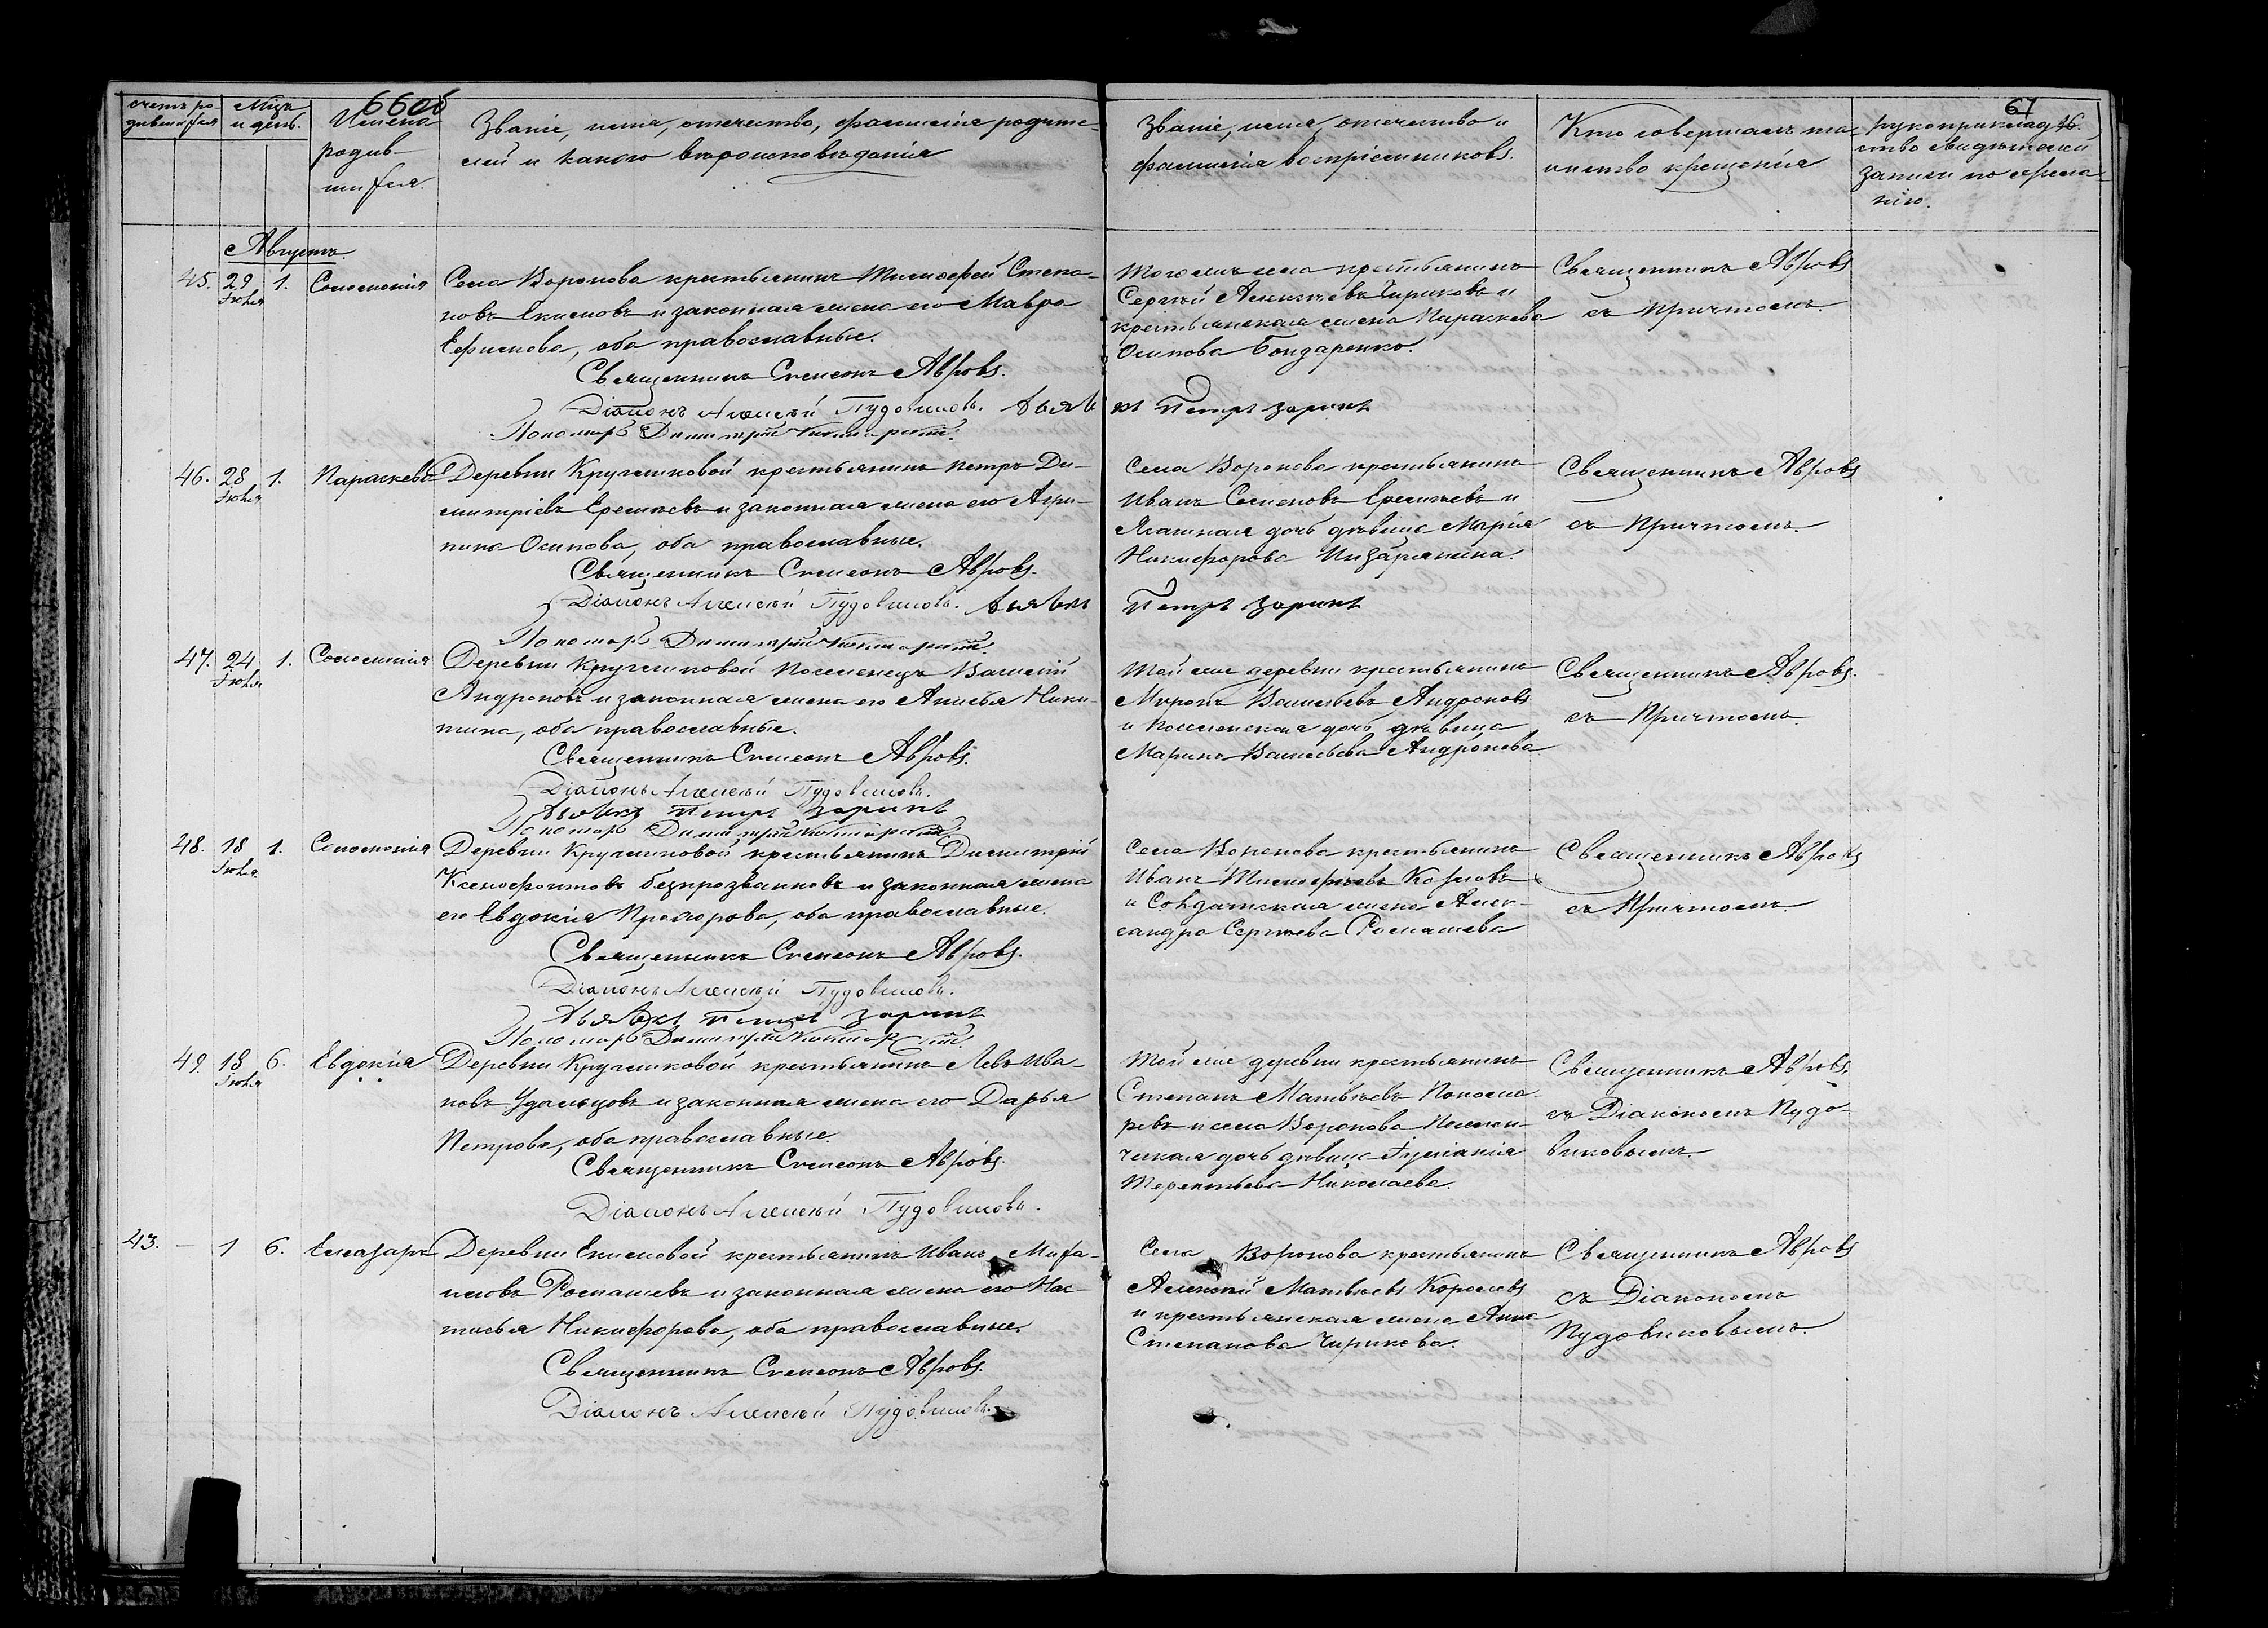 66об
67
Счетъ ро-
дившихся
Мцъ
и день.
Имена
родив-
шихся.
Званіе, имя, отчество, фамилія родите-
лей и какого вѣроисповѣданія
Званіе, имя, отчество и
фамилія воспріемниковъ.
Кто совершалъ та-
инство крещенія
Рукоприклад-
ство свидѣтелей
записи по жела-
нію.
Августъ.
45. 29 Іюля 1. Соломонія
Села Воронова крестьянинъ Тимофей Степа-
новъ Екимовъ и законная жена его Мавра
Ефимова, оба православные.
Священникъ Симеонъ Авровъ.
Діаконъ Алексѣй Пудовиковъ. Дьячекъ Петръ Заринъ
Пономарь Димитрій
Тогоже села крестьянинъ
Сергѣй Алексѣевъ Чириковъ и
крестьянская жена Параскева
Осипова Бондаренко.
Священникъ Авровъ
съ Причтомъ.
46. 28 Іюля 1. Параскева
Деревни Кругликовой крестьянинъ Петръ Ди-
митріевъ Еремѣевъ и законная жена его Агри-
пина Осипова, оба православные.
Священникъ Симеонъ Авровъ.
Діаконъ Алексѣй Пудовиковъ. Дьячекъ Петръ Заринъ
Пономарь Димитрій
Села Воронова крестьянинъ
Иванъ Семеновъ Еремѣевъ и
Ясашная дочь дѣвица Марія
Никифорова
Священникъ Авровъ
съ Причтомъ.
47. 24 Іюля 1. Соломонія
Деревни Кругликовой Поселенецъ Василій
Андроновъ и законная жена его Анисья Ники-
тина, оба православные.
Священникъ Симеонъ Авровъ.
Діаконъ Алексѣй Пудовиковъ.
Дьячекъ Петръ Заринъ
Пономарь Димитрій
Той же деревни крестьянинъ
Миронъ Васильевъ Андроновъ
и Поселенская дочь дѣвица
Марина Васильева Андронова
Священникъ Авровъ.
съ Причтомъ.
48. 18 Іюля 1. Соломонія
Деревни Кругликовой крестьянинъ Димитрій
Ксенофонтовъ Безпрозванновъ и законная жена
его Евдокія Прохорова, оба православные.
Священникъ Симеонъ Авровъ.
Діаконъ Алексѣй Пудовиковъ.
Дьячекъ Петръ Заринъ
Пономарь Димитрій
Села Воронова крестьянинъ
Иванъ Тимофѣевъ Козловъ
и Солдатская жена Алек-
сандра Сергѣева Ромашева
Священникъ Авровъ
съ Причтомъ.
49. 18 Іюля 6. Евдокія
Деревни Кругликовой крестьянинъ Левъ Ива-
новъ Удальцовъ и законная жена его Дарья
Петрова, оба православные.
Священникъ Симеонъ Авровъ.
Діаконъ Алексѣй Пудовиковъ.
Той же деревни крестьянинъ
Степанъ Матвѣевъ Понома-
ревъ и села Воронова Поселен-
ческая дочь дѣвица Іуліанія
Терентьева Николаева.
Священникъ Авровъ,
съ Діакономъ Пудо-
виковымъ.
43. — 1 6. Елеазаръ
Деревни Екимовой крестьянинъ Иванъ Миха-
иловъ Ромашевъ и законная жена его Нас-
тасья Никифорова, оба православные.
Священникъ Симеонъ Авровъ.
Діаконъ Алексѣй Пудовиковъ.
Села Воронова крестьянинъ
Алексѣй Матвѣевъ Королевъ
и крестьянская жена Анна
Степанова Чирикова.
Священникъ Авровъ
съ Діакономъ
Пудовиковымъ.